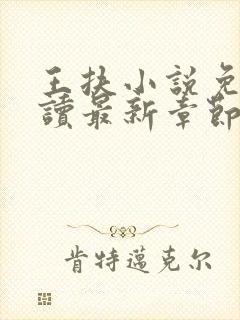 王扶小說免
讀最新章節
肯特邁克尔